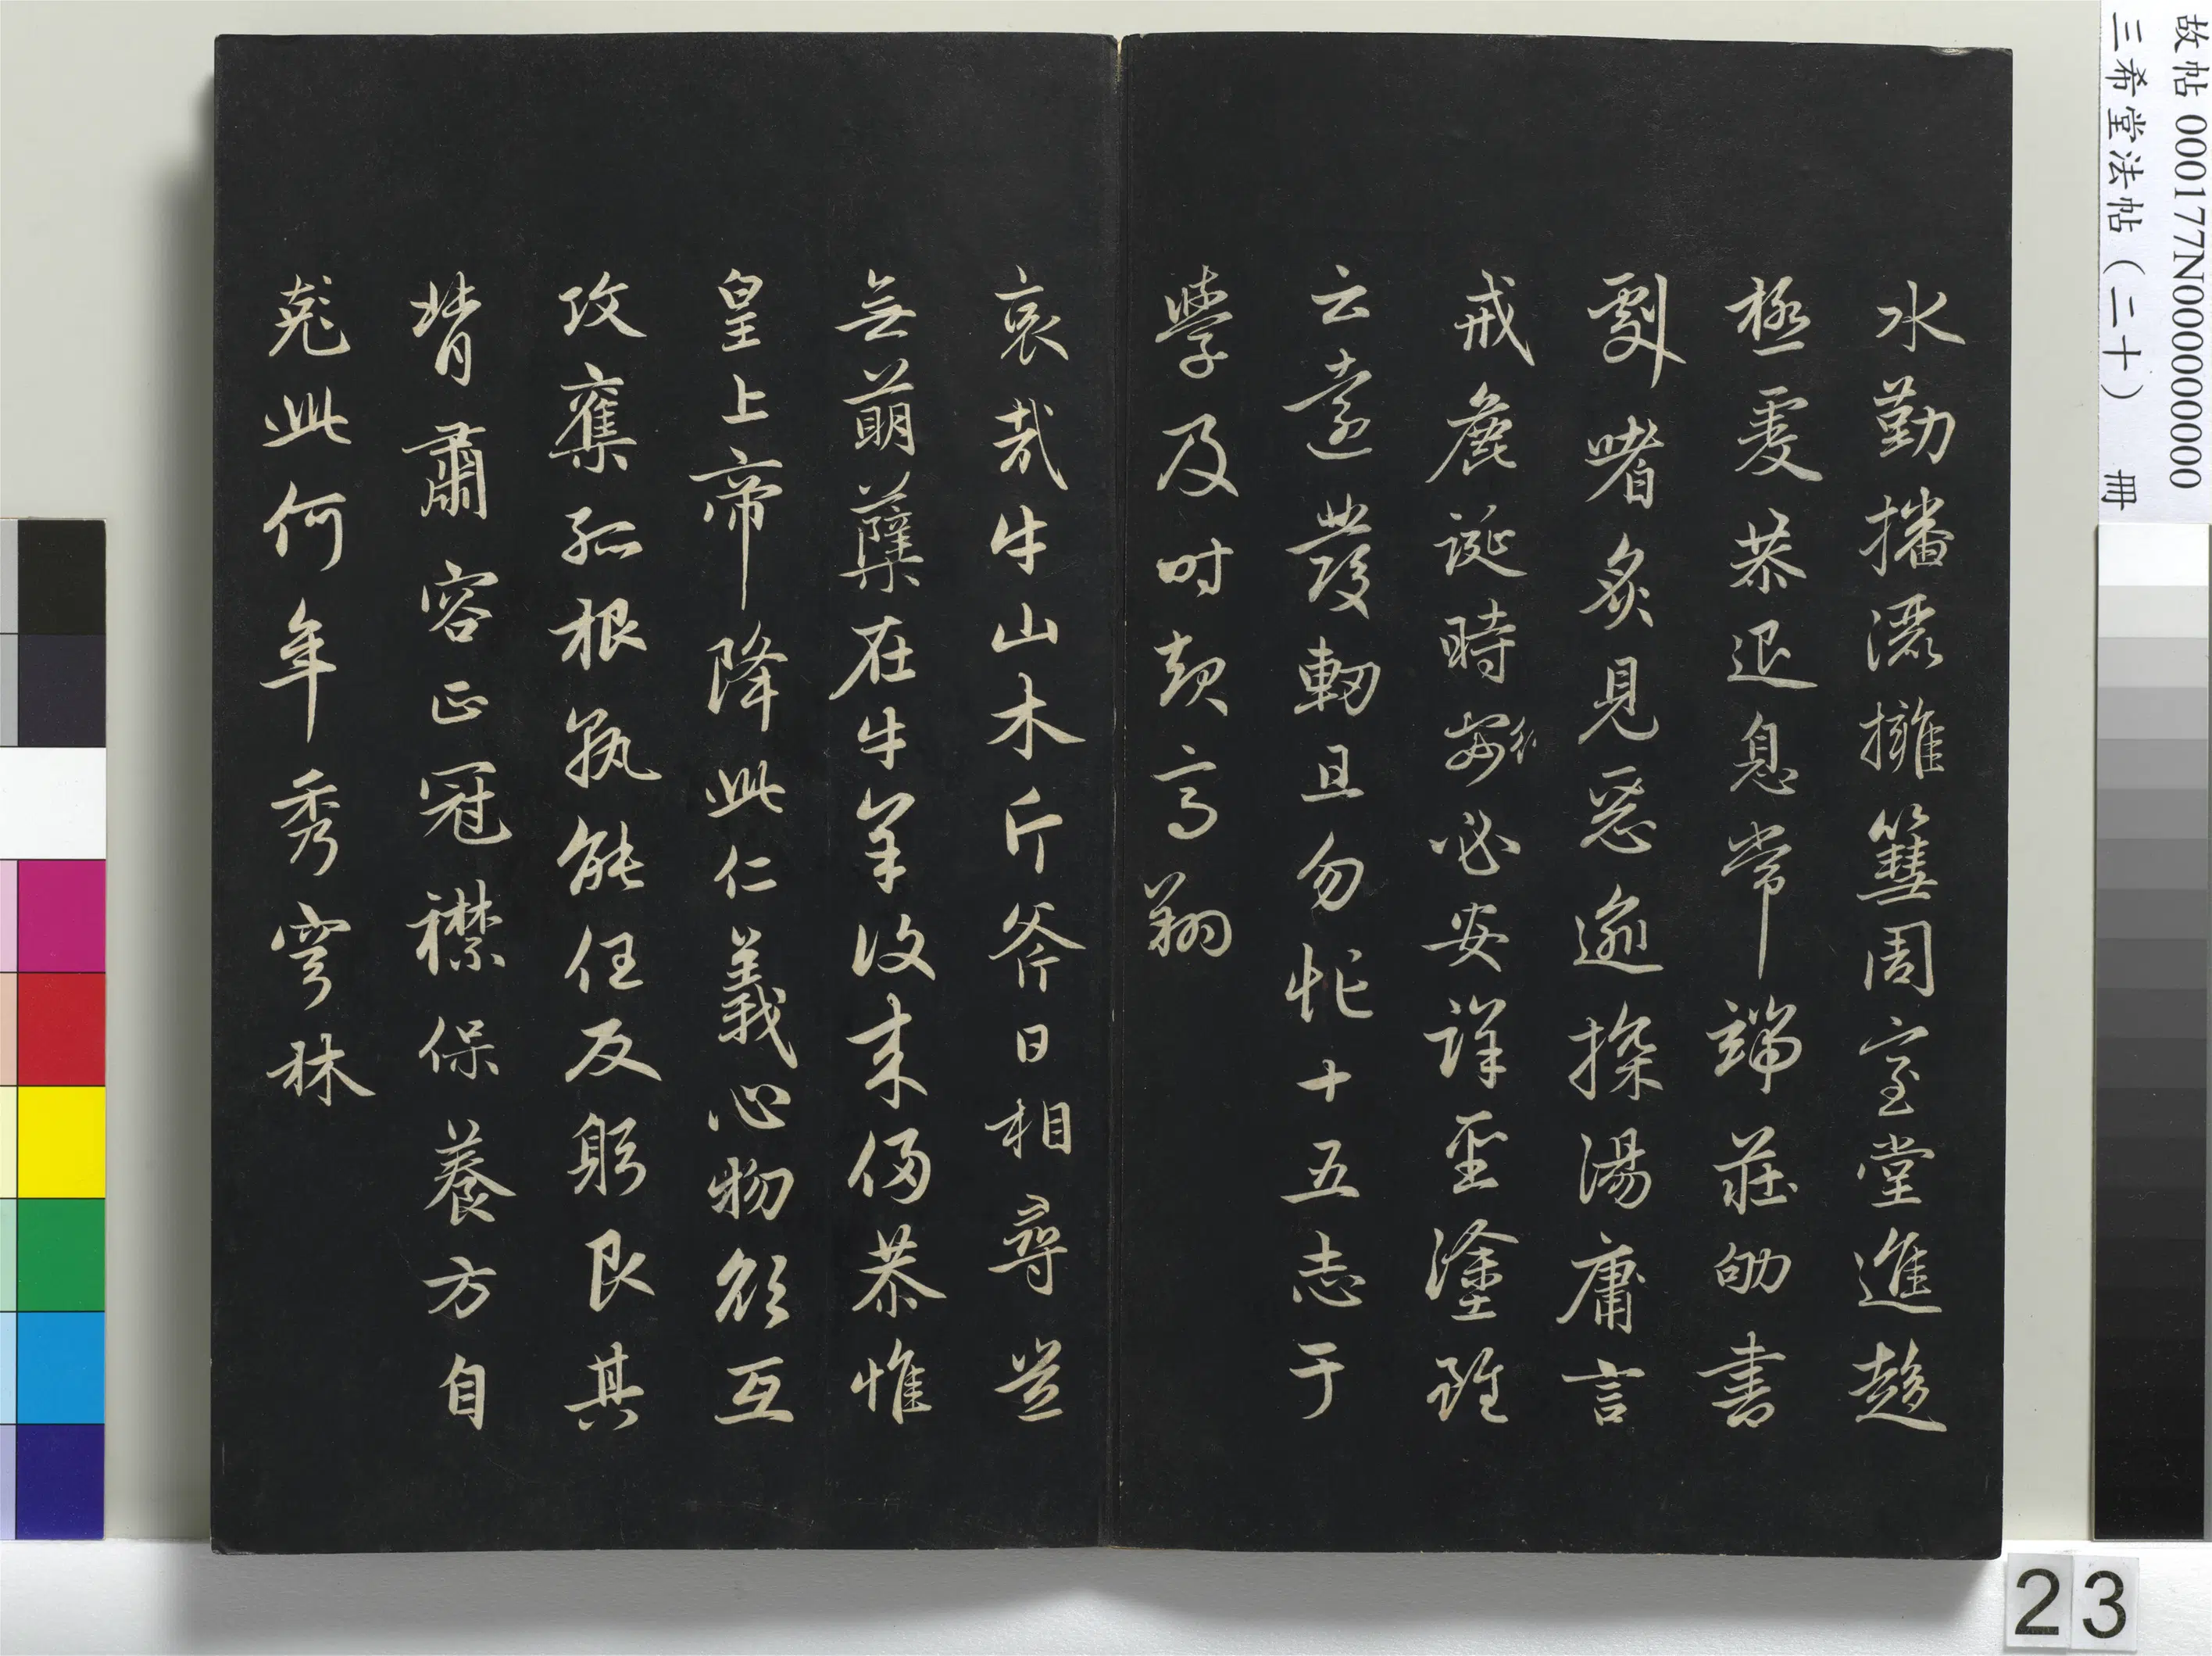 故帖 000177N000000000
三希堂法帖（二十） 冊
水勤播灑擁篲周室堂進趨
極虔恭退息常端莊劬書
劇嗜炙見惡逾探湯庸言
戒麁誕時行必安詳聖塗雖
云遠發軔且勿忙十五志于
學及時起高翔
哀哉牛山木斤斧日相尋豈
無萌蘖在牛羊復來侵恭惟
皇上帝降此仁義心物欲互
攻奪孤根孰能任反躬艮其
背肅容正冠襟保養方自
此何年秀穹林
23